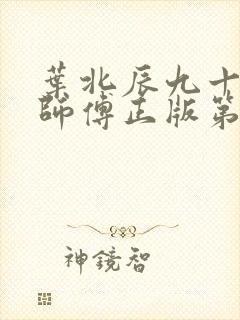 葉北辰九十
師傅正版第
神鏡智